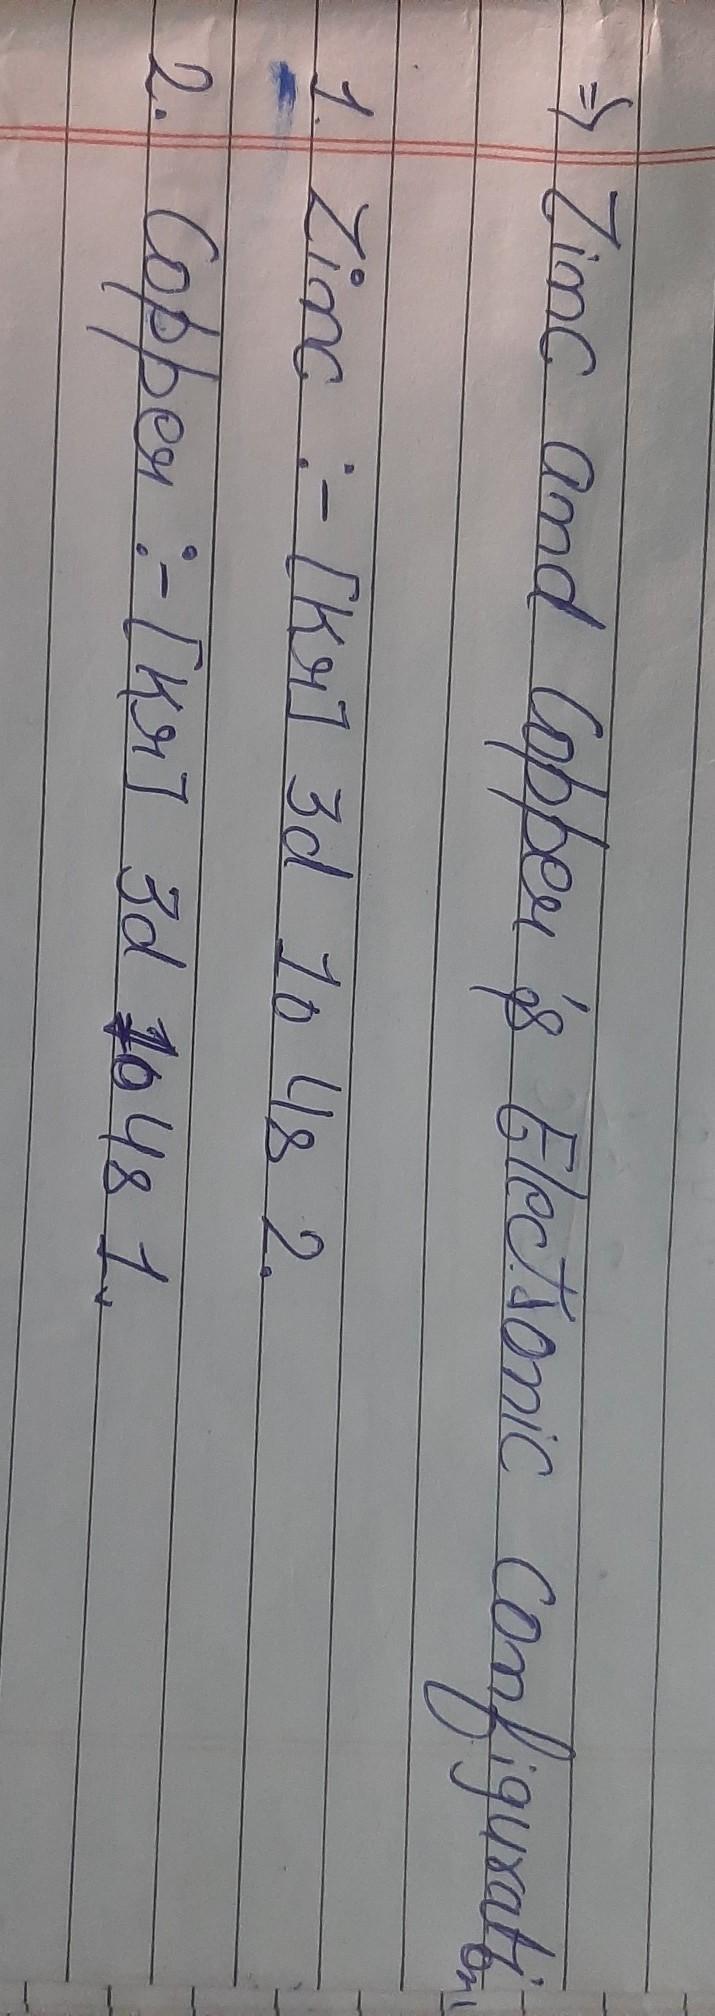 => Zinc and Copper's Electronic Configuration
1. Zinc :- [Kr] 3d 10 4s 2.
2. Copper :- [Kr] 3d 10 4s 1.